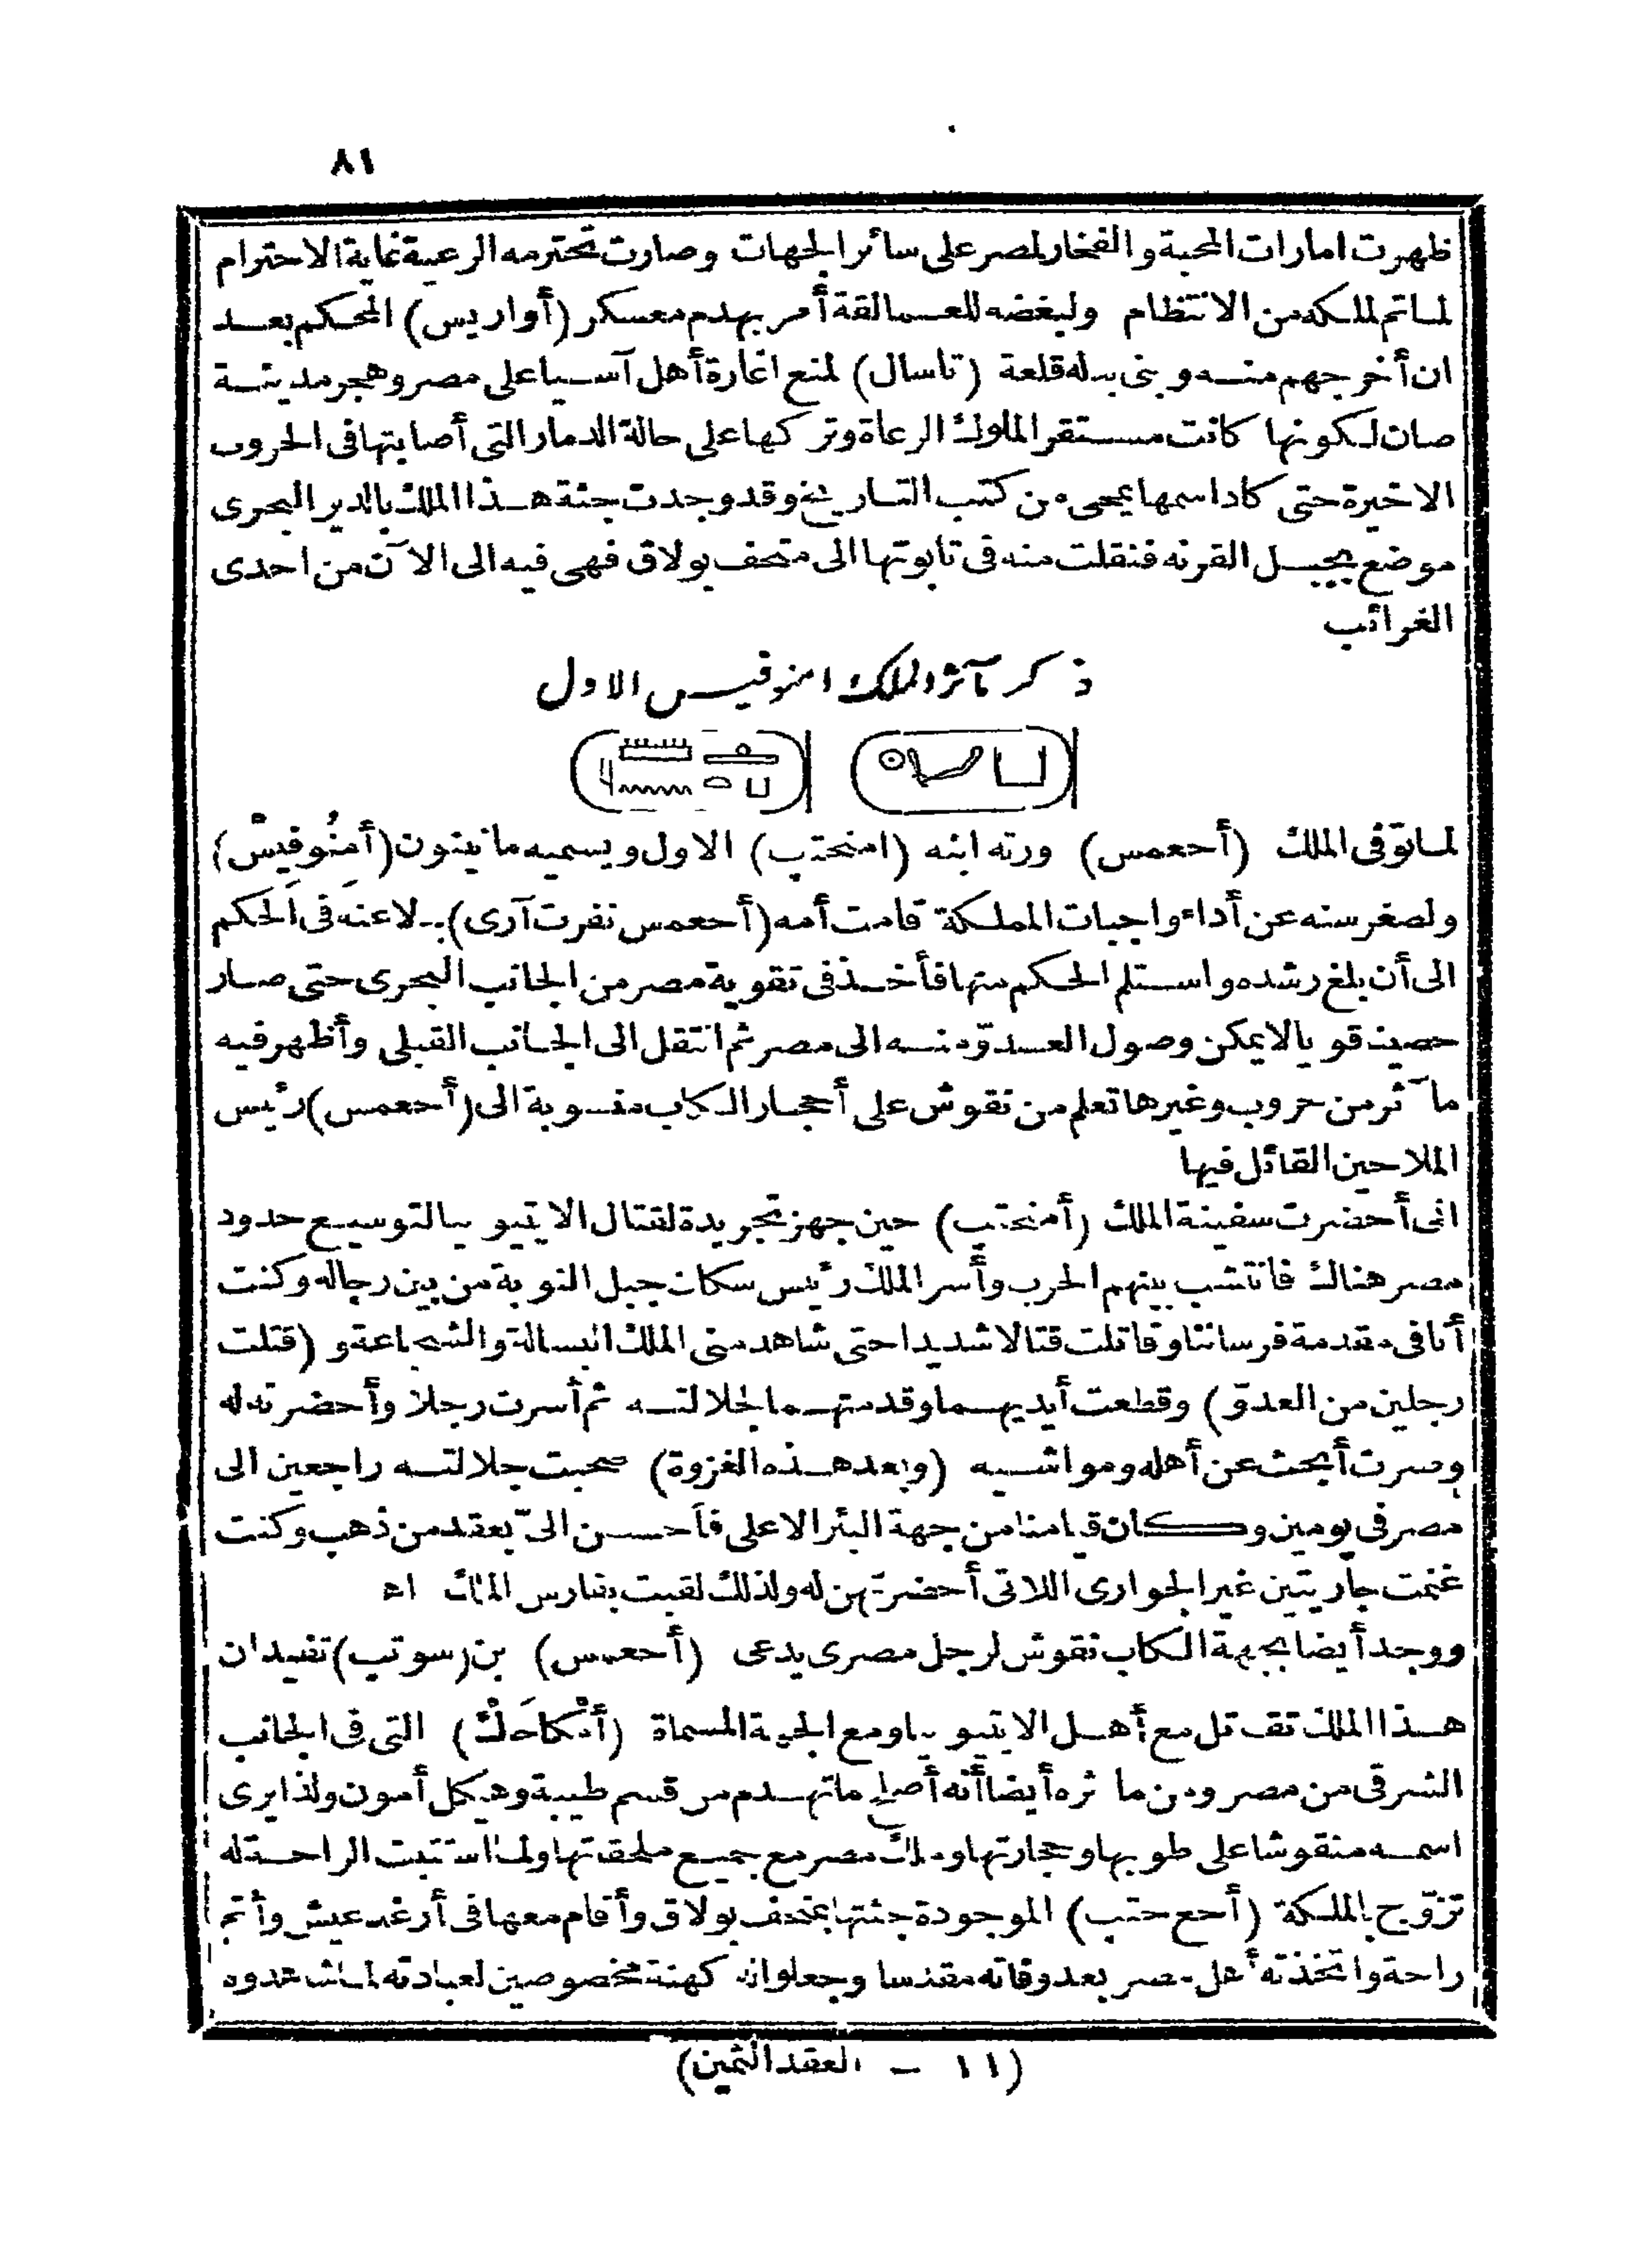 ٨١
ظهرت امارات المحبة والفخار لمصر على سائر الجهات وصارت تحترمه الرعية غاية الاحترام
لما تم لملكه من الانتظام ولبغضه للعمالقة أمر بهدم معسكر (أواريس) المحكم بعد
ان أخرجهم منه وبنى بدله قلعة (تاسال) لمنع اغارة أهل آسيا على مصر وهجر مدينة
صان لكونها كانت مستقر الملوك الرعاة وتركها على حالة الدمار التى أصابتها فى الحروب
الاخيرة حتى كاد اسمها يمحى من كتب التاريخ وقد وجدت جثة هذا الملك بالدير البحرى
موضع بجبل القرنه فنقلت منه فى تابوتها الى متحف بولاق فهى فيه الى الآن من احدى
الغرائب
ذكر مآثر الملك امنوفيس الاول
لما توفى الملك (أحعمس) ورثه ابنه (امنحتب) الاول ويسميه مانيتون (أمنُوفيسْ)
ولصغر سنه عن أداء واجبات المملكة قامت أمه (أحعمس نفرت آرى) بدلا عنه فى الحكم
الى أن بلغ رشده واستلم الحكم منها فأخذ فى تقوية مصر من الجانب البحرى حتى صار
حصينا قويا لا يمكن وصول العدوّ منه الى مصر ثم انتقل الى الجانب القبلى وأظهر فيه
مآثر من حروب وغيرها تعلم من نقوش على أحجار الكاب منسوبة الى (أحعمس) رئيس
الملاحين القائل فيها
انى أحضرت سفينة الملك (أمنحتب) حين جهز تجريدة لقتال الايتيوبيا لتوسيع حدود
مصر هناك فانتشب بينهم الحرب وأسر الملك رئيس سكان جبل النوبة من بين رجاله وكنت
أنا فى مقدمة فرساننا وقاتلت قتالا شديدا حتى شاهد منى الملك البسالة والشجاعة و (قتلت
رجلين من العدوّ) وقطعت أيديهما وقدمتهما لجلالته ثم أسرت رجلا وأحضرته له
وصرت أبحث عن أهله ومواشيه (وبعد هذه الغزوة) صحبت جلالته راجعين الى
مصر فى يومين وكان قيامنا من جهة البئر الاعلى فأحسن الىّ بعقد من ذهب وكنت
غنمت جاريتين غير الجوارى اللاتى أحضرتهن له ولذلك لقبت بفارس الملك اه
ووجد أيضا بجهة الكاب نقوش لرجل مصرى يدعى (أحعمس) بن (سوتب) تفيد ان
هذا الملك تقاتل مع أهل الايتيوبيا ومع الجهة المسماة التى فى الجانب
الشرقى من مصر ومن مآثره أيضا أنه أصلح ما تهدم من قسم طيبة وهيكل أمون ولذا يرى
اسمه منقوشا على طوبها وحجارتها وملك مصر مع جميع ملحقتها ولما استتبت الراحة له
تزوّج بالملكة (أحع حتب) الموجودة جثتها بمتحف بولاق وأقام معها فى أرغد عيش وأتم
راحة واتخذته أهل مصر بعد وفاته مقدسا وجعلوا له كهنة مخصوصين لعبادته لما شاهدوه
(١١ – العقد الثمين)